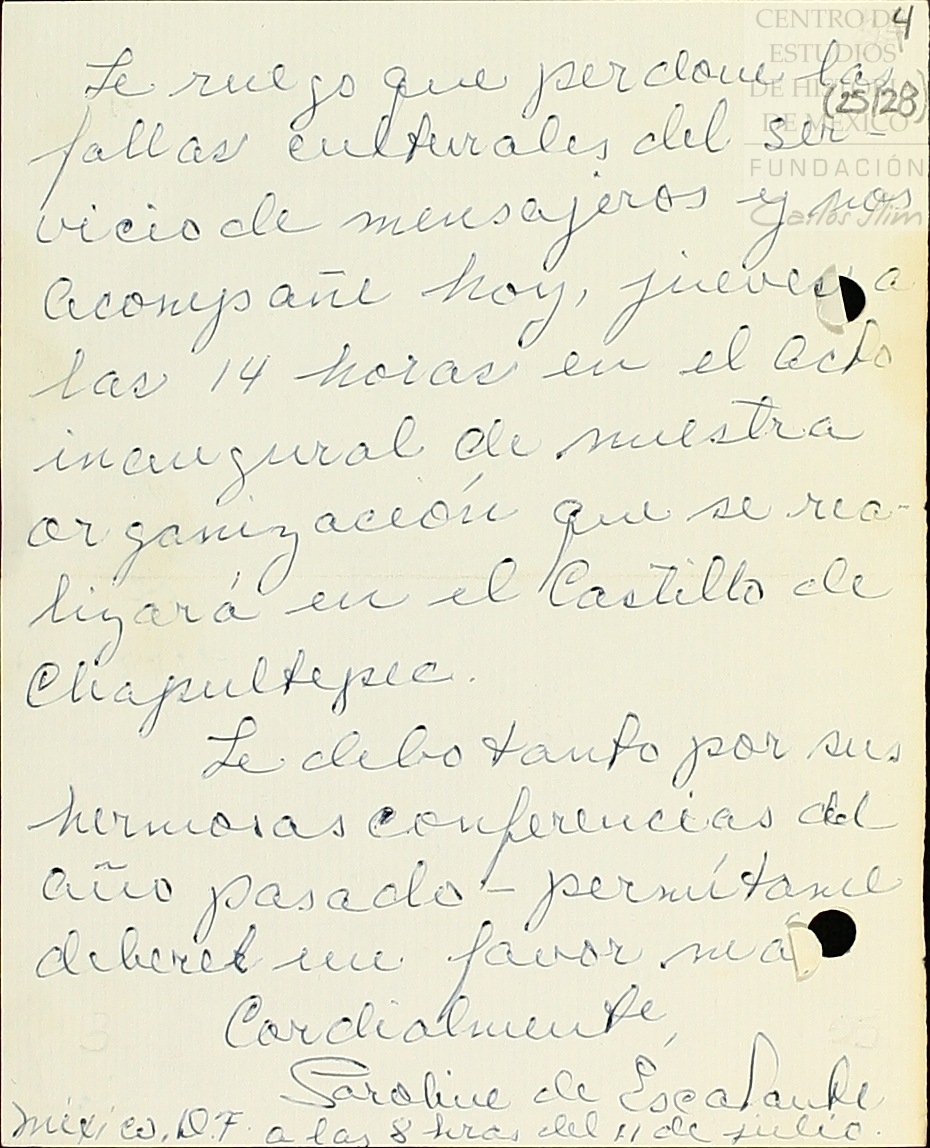 4
CENTRO DE
ESTUDIOS
DE HISTORIA
DE MÉXICO
(25/28)
FUNDACIÓN
Carlos Slim
Le ruego que perdone las
fallas culturales del ser-
vicio de mensajeros y nos
acompañe hoy, jueves a
las 14 horas en el acto
inaugural de nuestra
organización que se rea-
lizará en el Castillo de
Chapultepec.
Le debo tanto por sus
hermosas conferencias del
año pasado – permítame
deberle un favor má
Cordialmente,
de Escalante
México, D.F. a las 8 hras del 11 de julio.